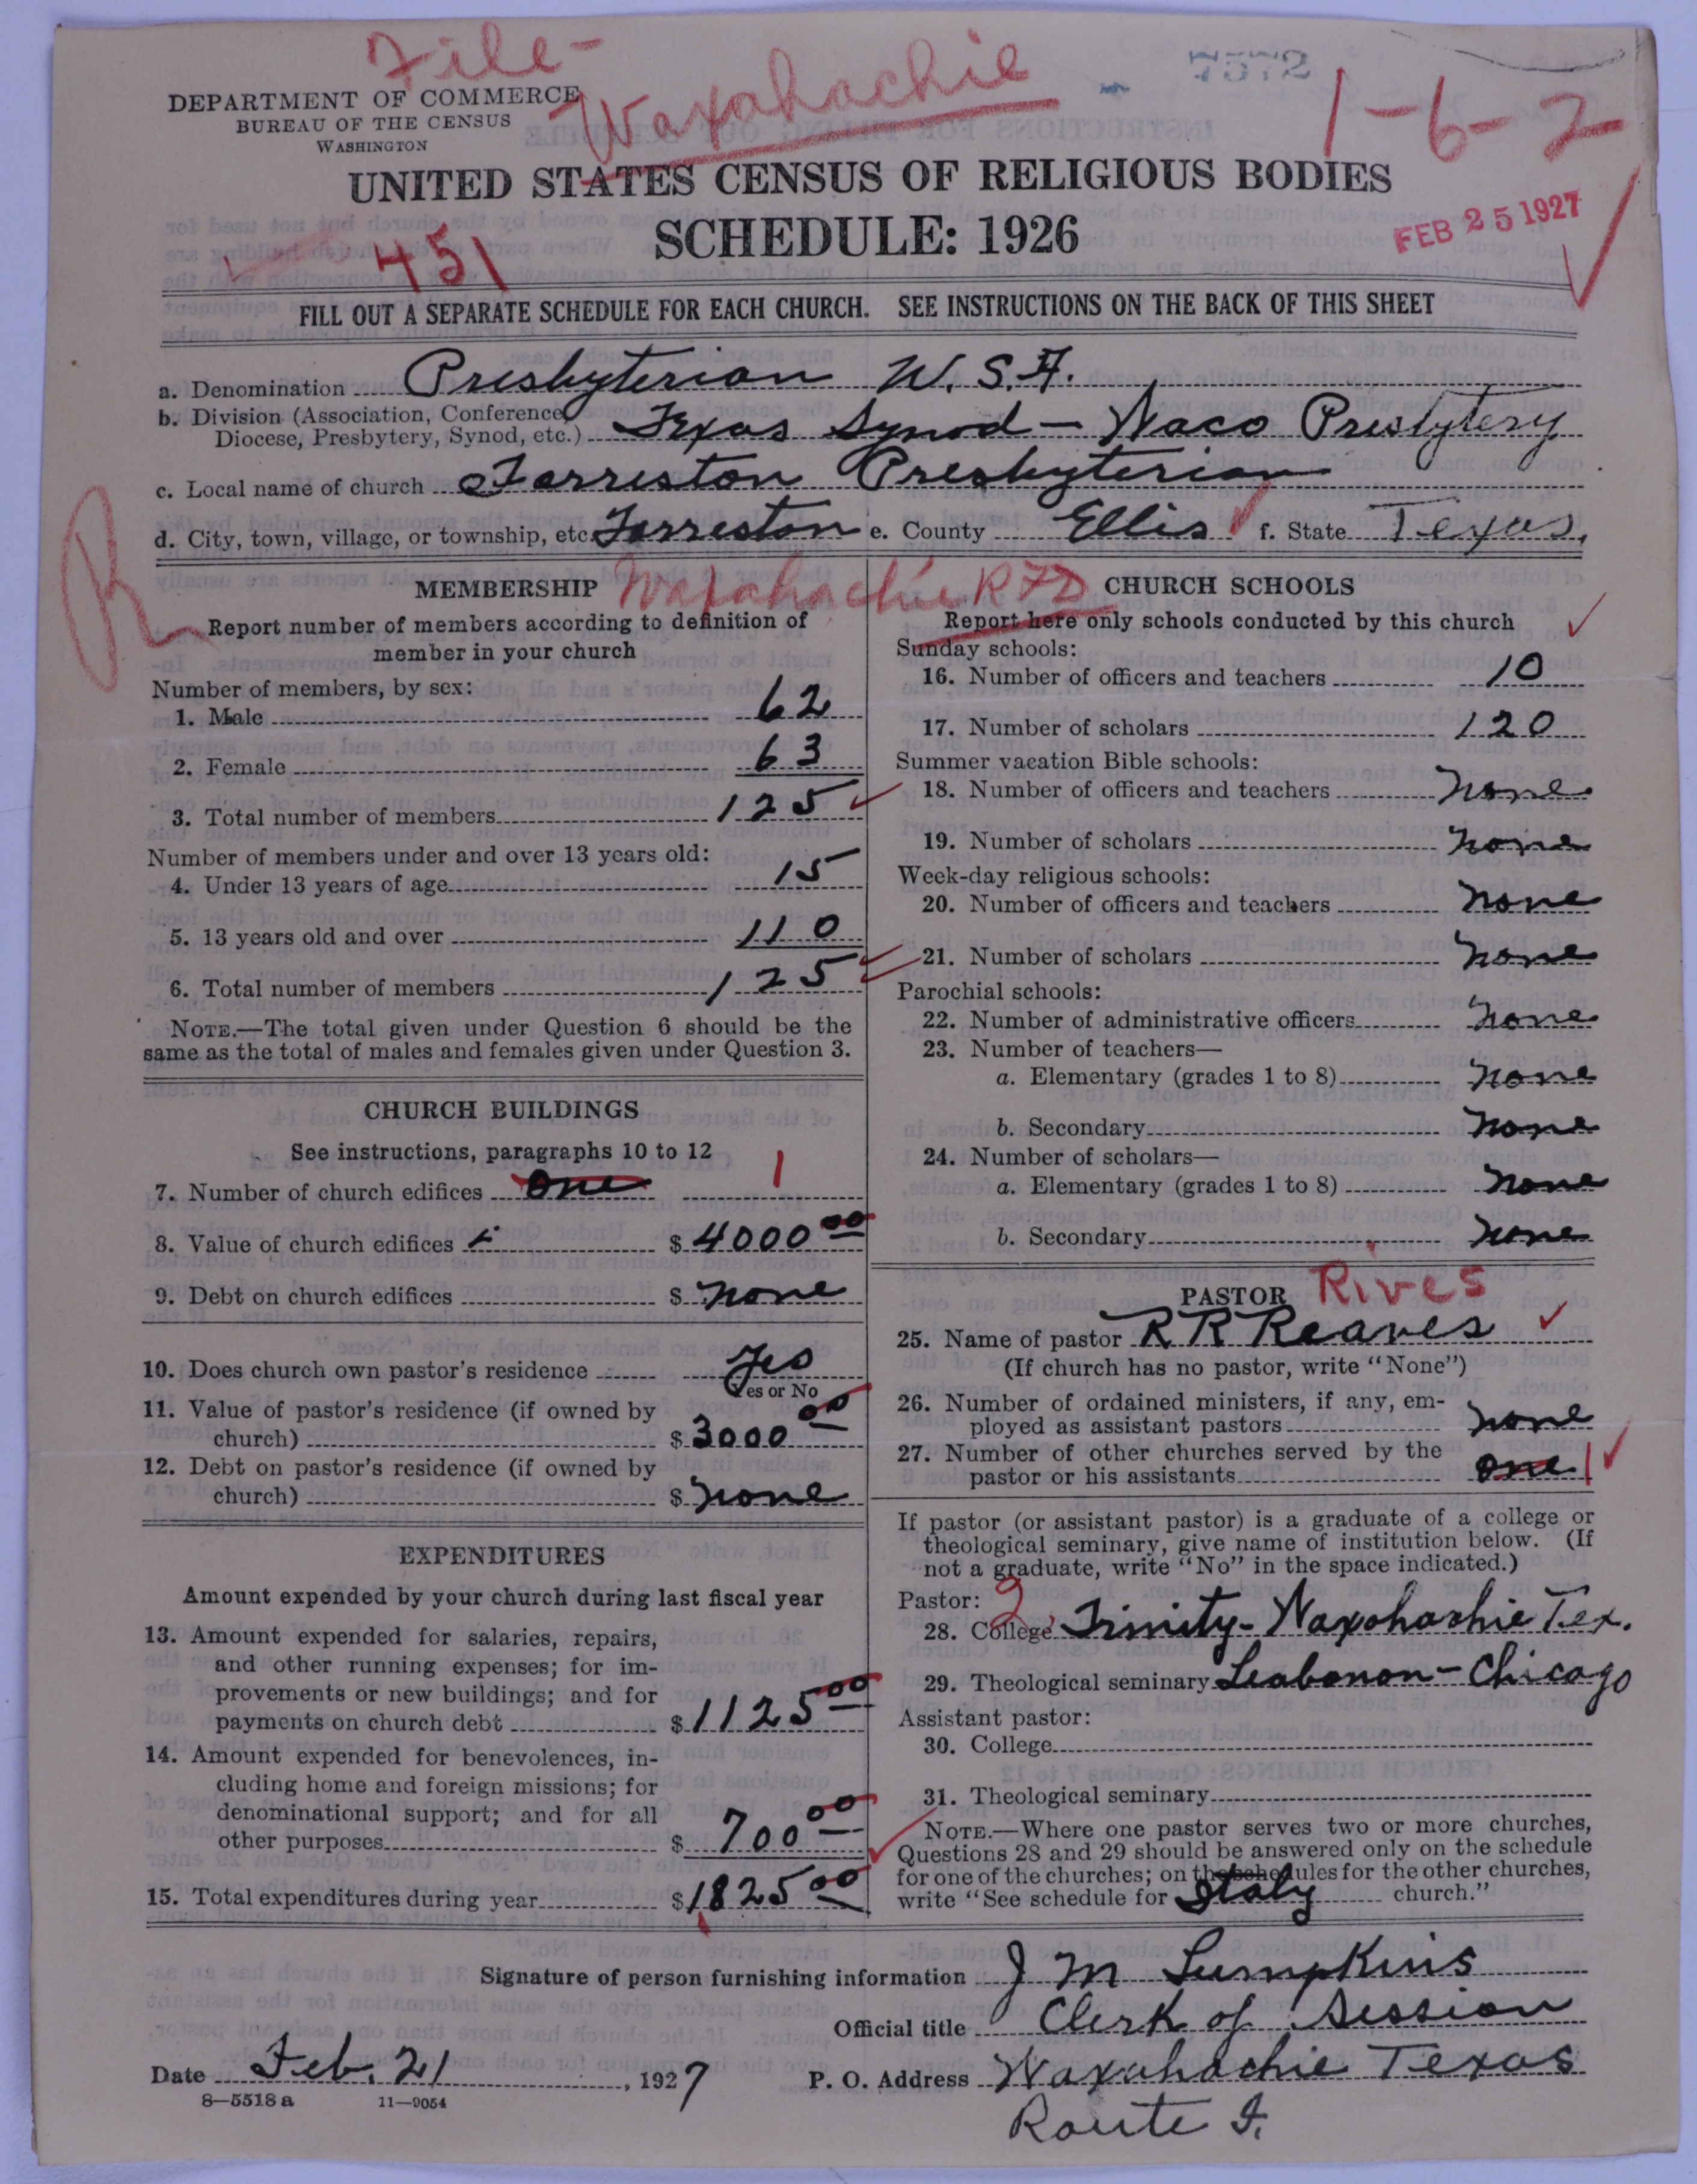 File-
Waxahachie
1-6-2
DEPARTMENT OF COMMERCE
BUREAU OF THE CENSUS
WASHINGTON
UNITED STATES CENSUS OF RELIGIOUS BODIES
SCHEDULE: 1926
451
FEB 25 1927
FILL OUT A SEPARATE SCHEDULE FOR EACH CHURCH. SEE INSTRUCTIONS ON THE BACK OF THIS SHEET
a. Denomination Presbyterian U.S.A.
b. Division (Association, Conference,
Diocese, Presbytery, Synod, etc.) Texas Synod - Waco Presbytery
c. Local name of church Forreston Presbyterian
d. City, town, village, or township, etc. Forreston e. County Ellis f. State Texas.
R
Waxahachie RFD
MEMBERSHIP
Report number of members according to definition of
member in your church
Number of members, by sex:
1. Male 62
2. Female 63
3. Total number of members 125
Number of members under and over 13 years old:
4. Under 13 years of age 15
5. 13 years old and over 110
6. Total number of members 125
NOTE.—The total given under Question 6 should be the
same as the total of males and females given under Question 3.
CHURCH BUILDINGS
See instructions, paragraphs 10 to 12
7. Number of church edifices One 1
8. Value of church edifices $4000 00
9. Debt on church edifices $ none
10. Does church own pastor's residence Yes
Yes or No
11. Value of pastor's residence (if owned by
church) $3000 00
12. Debt on pastor's residence (if owned by
church) $ none
EXPENDITURES
Amount expended by your church during last fiscal year
13. Amount expended for salaries, repairs,
and other running expenses; for im-
provements or new buildings; and for
payments on church debt $1125 00
14. Amount expended for benevolences, in-
cluding home and foreign missions; for
denominational support; and for all
other purposes $ 700 00
15. Total expenditures during year $1825 00
CHURCH SCHOOLS
Report here only schools conducted by this church
Sunday schools:
16. Number of officers and teachers 10
17. Number of scholars 120
Summer vacation Bible schools:
18. Number of officers and teachers none
19. Number of scholars none
Week-day religious schools:
20. Number of officers and teachers none
21. Number of scholars none
Parochial schools:
22. Number of administrative officers none
23. Number of teachers—
a. Elementary (grades 1 to 8) none
b. Secondary none
24. Number of scholars—
a. Elementary (grades 1 to 8) none
b. Secondary none
PASTOR Rives
25. Name of pastor R R Reaves
(If church has no pastor, write "None")
26. Number of ordained ministers, if any, em-
ployed as assistant pastors none
27. Number of other churches served by the
pastor or his assistants one 1
If pastor (or assistant pastor) is a graduate of a college or
theological seminary, give name of institution below. (If
not a graduate, write "No" in the space indicated.)
Pastor: 2
28. College Trinity - Waxahachie Tex.
29. Theological seminary Leabonon - Chicago
Assistant pastor:
30. College
31. Theological seminary
NOTE.—Where one pastor serves two or more churches,
Questions 28 and 29 should be answered only on the schedule
for one of the churches; on the schedules for the other churches,
write "See schedule for Italy church."
Signature of person furnishing information J M Lumpkins
Official title Clerk of Session
Date Feb. 21, 1927 P. O. Address Waxahachie Texas
8—5518 a 11—9054
Route